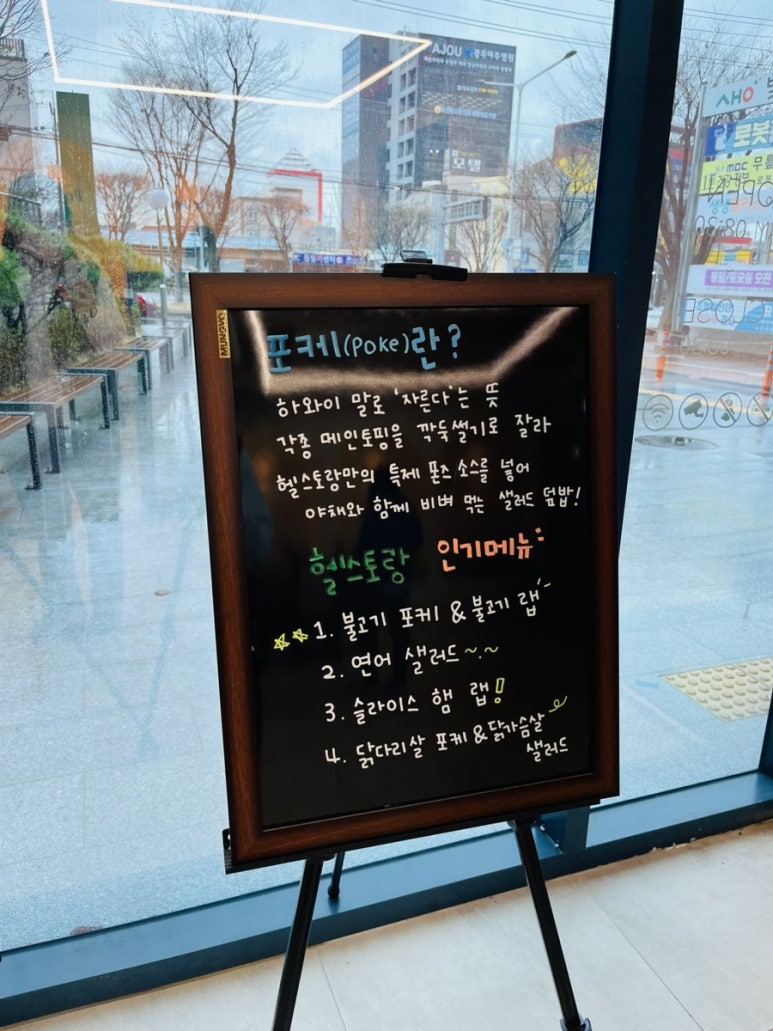 AJOU 광주아주병원
모텔
MUNGYO
포케(POKE)란?
하와이 말로 '자른다'는 뜻
각종 메인토핑을 깍둑썰기로 잘라
헬스토랑만의 특제 폰즈 소스를 넣어
야채와 함께 비벼 먹는 샐러드 덮밥!
헬스토랑 인기메뉴:
☆☆ 1. 불고기 포케 & 불고기 랩
2. 연어 샐러드~.~
3. 슬라이스 햄 랩!
4. 닭다리살 포케 & 닭가슴살
샐러드
mbc
OPEN